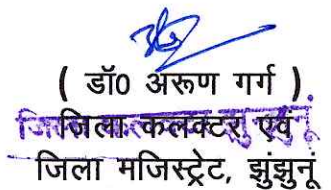 ( डॉ0 अरूण गर्ग )
जिला कलक्टर एवं
जिला मजिस्ट्रेट, झुंझुनूं